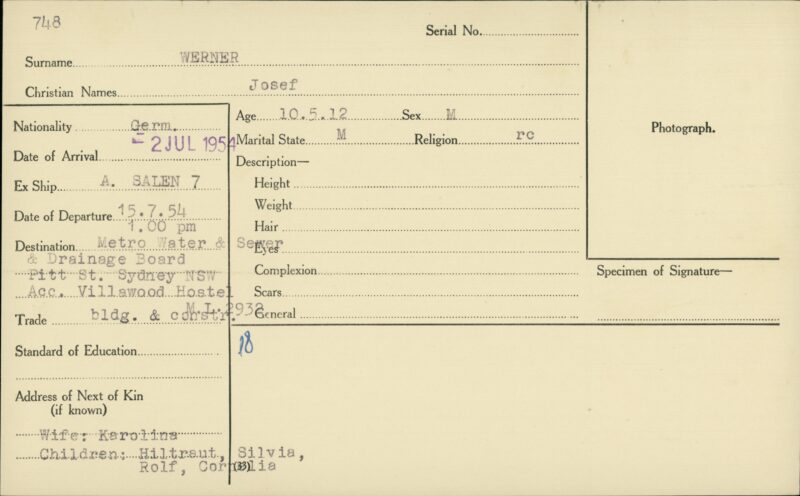 748
Serial No.
Surname WERNER
Christian Names Josef
Nationality Germ.
Date of Arrival - 2 JUL 1954
Ex Ship A. SALEN 7
Date of Departure 15.7.54
1.00 pm
Destination Metro Water & Sewer
& Drainage Board
Pitt St. Sydney NSW
Acc. Villawood Hostel
M.L. 2938
Trade bldg. & constr.
Standard of Education
Address of Next of Kin
(if known)
Wife: Karolina
Children: Hiltraut, Silvia,
Rolf, Cornelia
Age 10.5.12 Sex M
Marital State M Religion rc
Description—
Height
Weight
Hair
Eyes
Complexion
Scars
General
18
(33)
Photograph.
Specimen of Signature—